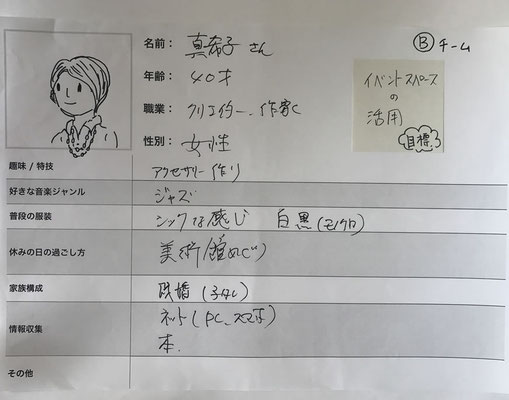 Ⓑ チーム
名前： 真希子 さん
年齢： 40才
職業： クリエイター、作家
性別： 女性
イベントスペース
の
活用
目標
趣味 / 特技 アクセサリー作り
好きな音楽ジャンル ジャズ
普段の服装 シックな感じ 白黒(モノクロ)
休みの日の過ごし方 美術館めぐり
家族構成 既婚 (子なし)
情報収集 ネット(PC、スマホ)
本
その他